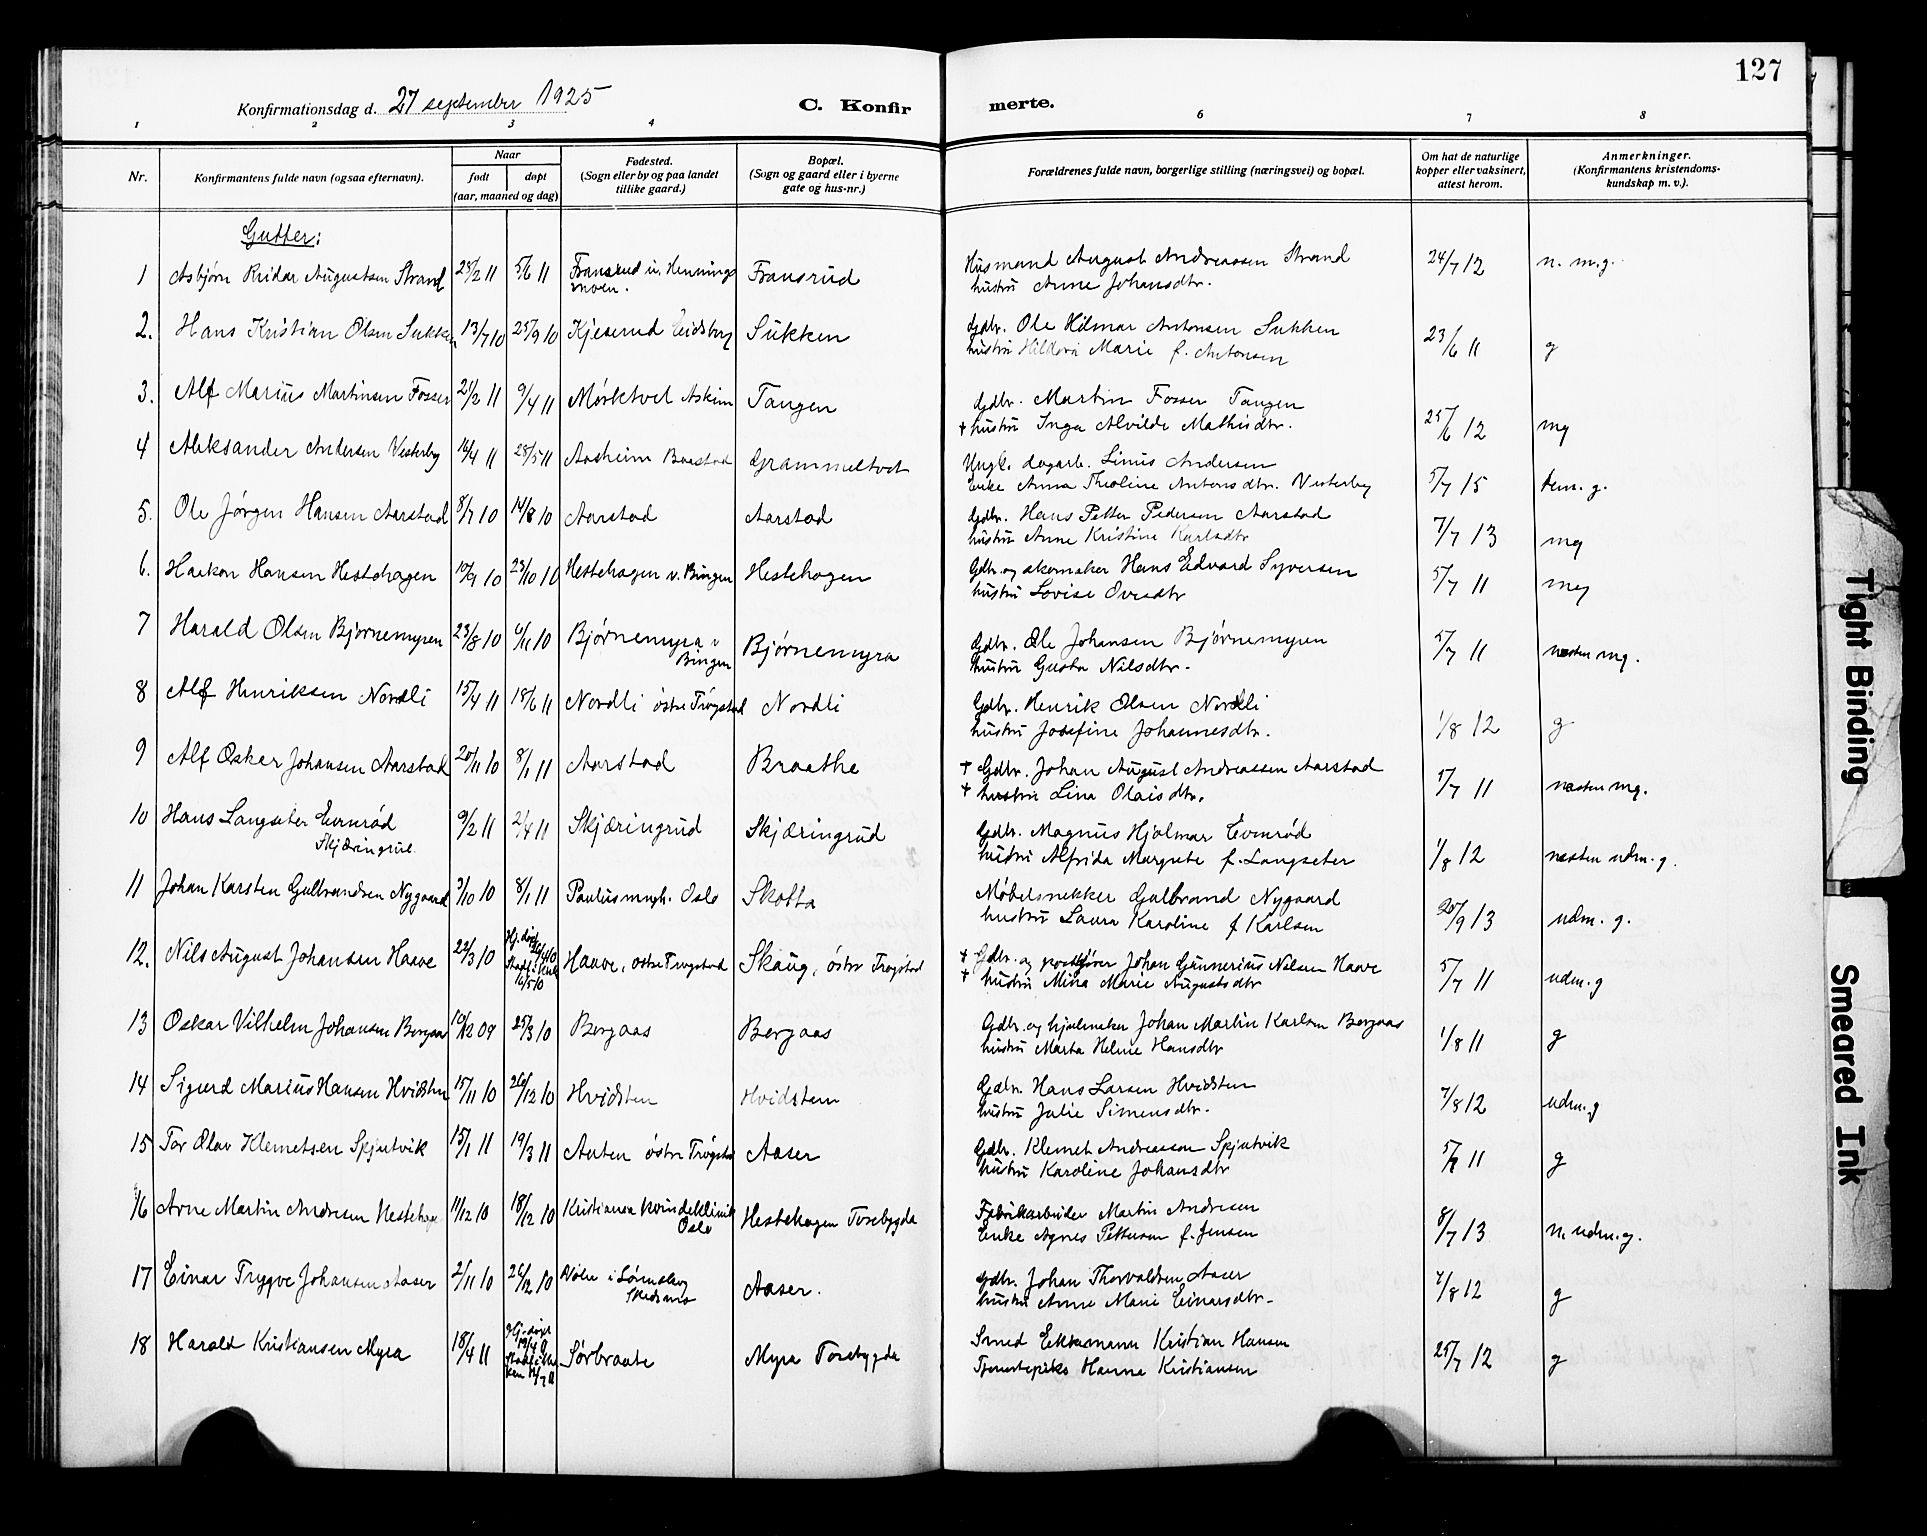 127
Konfirmationsdag d. 27 september 1925
C. Konfirmerte.
1 2 3 4 6 7 8
Nr. Konfirmantens fulde navn (ogsaa efternavn). Naar født døpt (aar, maaned og dag) Fødested. (Sogn eller by og paa landet tillike gaard.) Bopæl. (Sogn og gaard eller i byerne gate og hus-nr.) Forældrenes fulde navn, borgerlige stilling (næringsvei) og bopæl. Om hat de naturlige kopper eller vaksinert, attest herom. Anmerkninger. (Konfirmantens kristendomskundskap m. v.).
Gutter:
1 Asbjørn Reidar Augustsen Strand 25/2 11 5/6 11 Fransrud u. Hennings moen. Fransrud Husmand August Andreassen Strand 24/7 12 n. m.g.
hustru Anne Johansdtr.
2. Hans Kristian Olsen Sukken 13/7 10 25/9 10 Kjeserud Eidsberg Sukken Gdbr. Ole Hilmar Antonsen Sukken 23/6 11 g
hustru Hildora Marie f. Antonsen
3. Alf Marius Martinsen Fosser 21/2 11 9/4 11 Mørktvet Askim Tangen Gdbr. Martin Fosser Tangen 25/6 12 mg
† hustru Inga Alvilde Mathisdtr.
4 Aleksander Andersen Vesterby 16/4 11 28/5 11 Aasheim Baastad Grammeltvet Ungk. dagarb. Linus Andersen 5/7 15 tem. g.
Enke Anna Theoline Antonsdtr. Vesterby
5. Ole Jørgen Hansen Aarstad 8/7 10 14/8 10 Aarstad Aarstad Gdbr. Hans Petter Pedersen Aarstad 7/7 13 mg
hustru Anne Kristine Karlsdtr
6. Haakon Hansen Hestehagen 10/9 10 23/10 10 Hestehagen v. Bingen Hestehagen Gdbr. og skomaker Hans Edvard Syversen 5/7 11 mg
hustru Lovise Ovesdtr
7 Harald Olsen Bjørnemyren 23/8 10 6/11 10 Bjørnemyra v Bingen Bjørnemyra Gdbr. Ole Johansen Bjørnemyren 5/7 11 næsten mg.
hustru Gusta Nilsdtr.
8 Alf Henriksen Nordli 15/4 11 18/6 11 Nordli østre Trøgstad Nordli Gdbr. Henrik Olsen Nordli 1/8 12 g
hustru Josefine Johannesdtr.
9 Alf Oskar Johansen Aarstad 20/11 10 8/1 11 Aarstad Braathe † Gdbr. Johan August Andreassen Aarstad 5/7 11 næsten mg.
† hustru Lina Olaisdtr.
10 Hans Langseter Evenrød Skjæringrud 9/2 11 2/4 11 Skjæringrud Skjæringrud Gdbr. Magnus Hjalmar Evenrød 1/8 12 næsten udm. g.
hustru Alfrida Margrete f. Langseter
11 Johan Karsten Gulbrandsen Nygaard 3/10 10 8/1 11 Paulusmngh. Oslo Skotta Møbelsnekker Gulbrand Nygaard 20/9 13 udm. g.
hustru Laura Karoline f Karlsen
12. Nils August Johansen Haave 22/3 10 Hj. døpt Haave, østre Trøgstad Skaug, østre Trøgstad † Gdbr. og postfører Johan Gunnerius Nilsen Haave 5/7 11 udm. g
16/5 10 † hustru Mina Marie Augustsdtr
13 Oskar Vilhelm Johansen Bergaas 10/12 09 25/3 10 Bergaas Bergaas Gdbr. og hjulmaker Johan Martin Karlsen Bergaas 1/8 11 g
hustru Marta Helene Hansdtr
14 Sigurd Marius Hansen Hvidsten 15/11 10 26/12 10 Hvidsten Hvidsten Gdbr. Hans Larsen Hvidsten 7/8 12 udm. g
hustru Julie Simensdtr.
15 Tor Olav Klemetsen Spjutvik 15/1 11 19/3 11 Anten østre Trøgstad Aaser Gdbr. Klemet Andreassen Spjutvik 5/7 11 g
hustru Karoline Johansdtr
16 Arne Martin Andresen Hestehagen 11/12 10 18/12 10 Kristiania kvindeklinik Oslo Hestehagen Torebygda Fabrikarbeider Martin Andresen 8/7 13 n. udm. g.
Enke Agnes Pettersen f. Jensen
17 Einar Trygve Johansen Aaser 2/11 10 26/12 10 Skedsmo Aaser. Gdbr. Johan Thorvaldsen Aaser 7/8 12 g
hustru Anne Marie Einarsdtr.
18 Harald Kristiansen Myra 18/4 11 Hj. døpt Sørbraate Myra Torebygda Smed Enkemann Kristian Hansen 25/7 12 g
Tjenestepike Hanna Kristiansen
Tight Binding
Smeared Ink